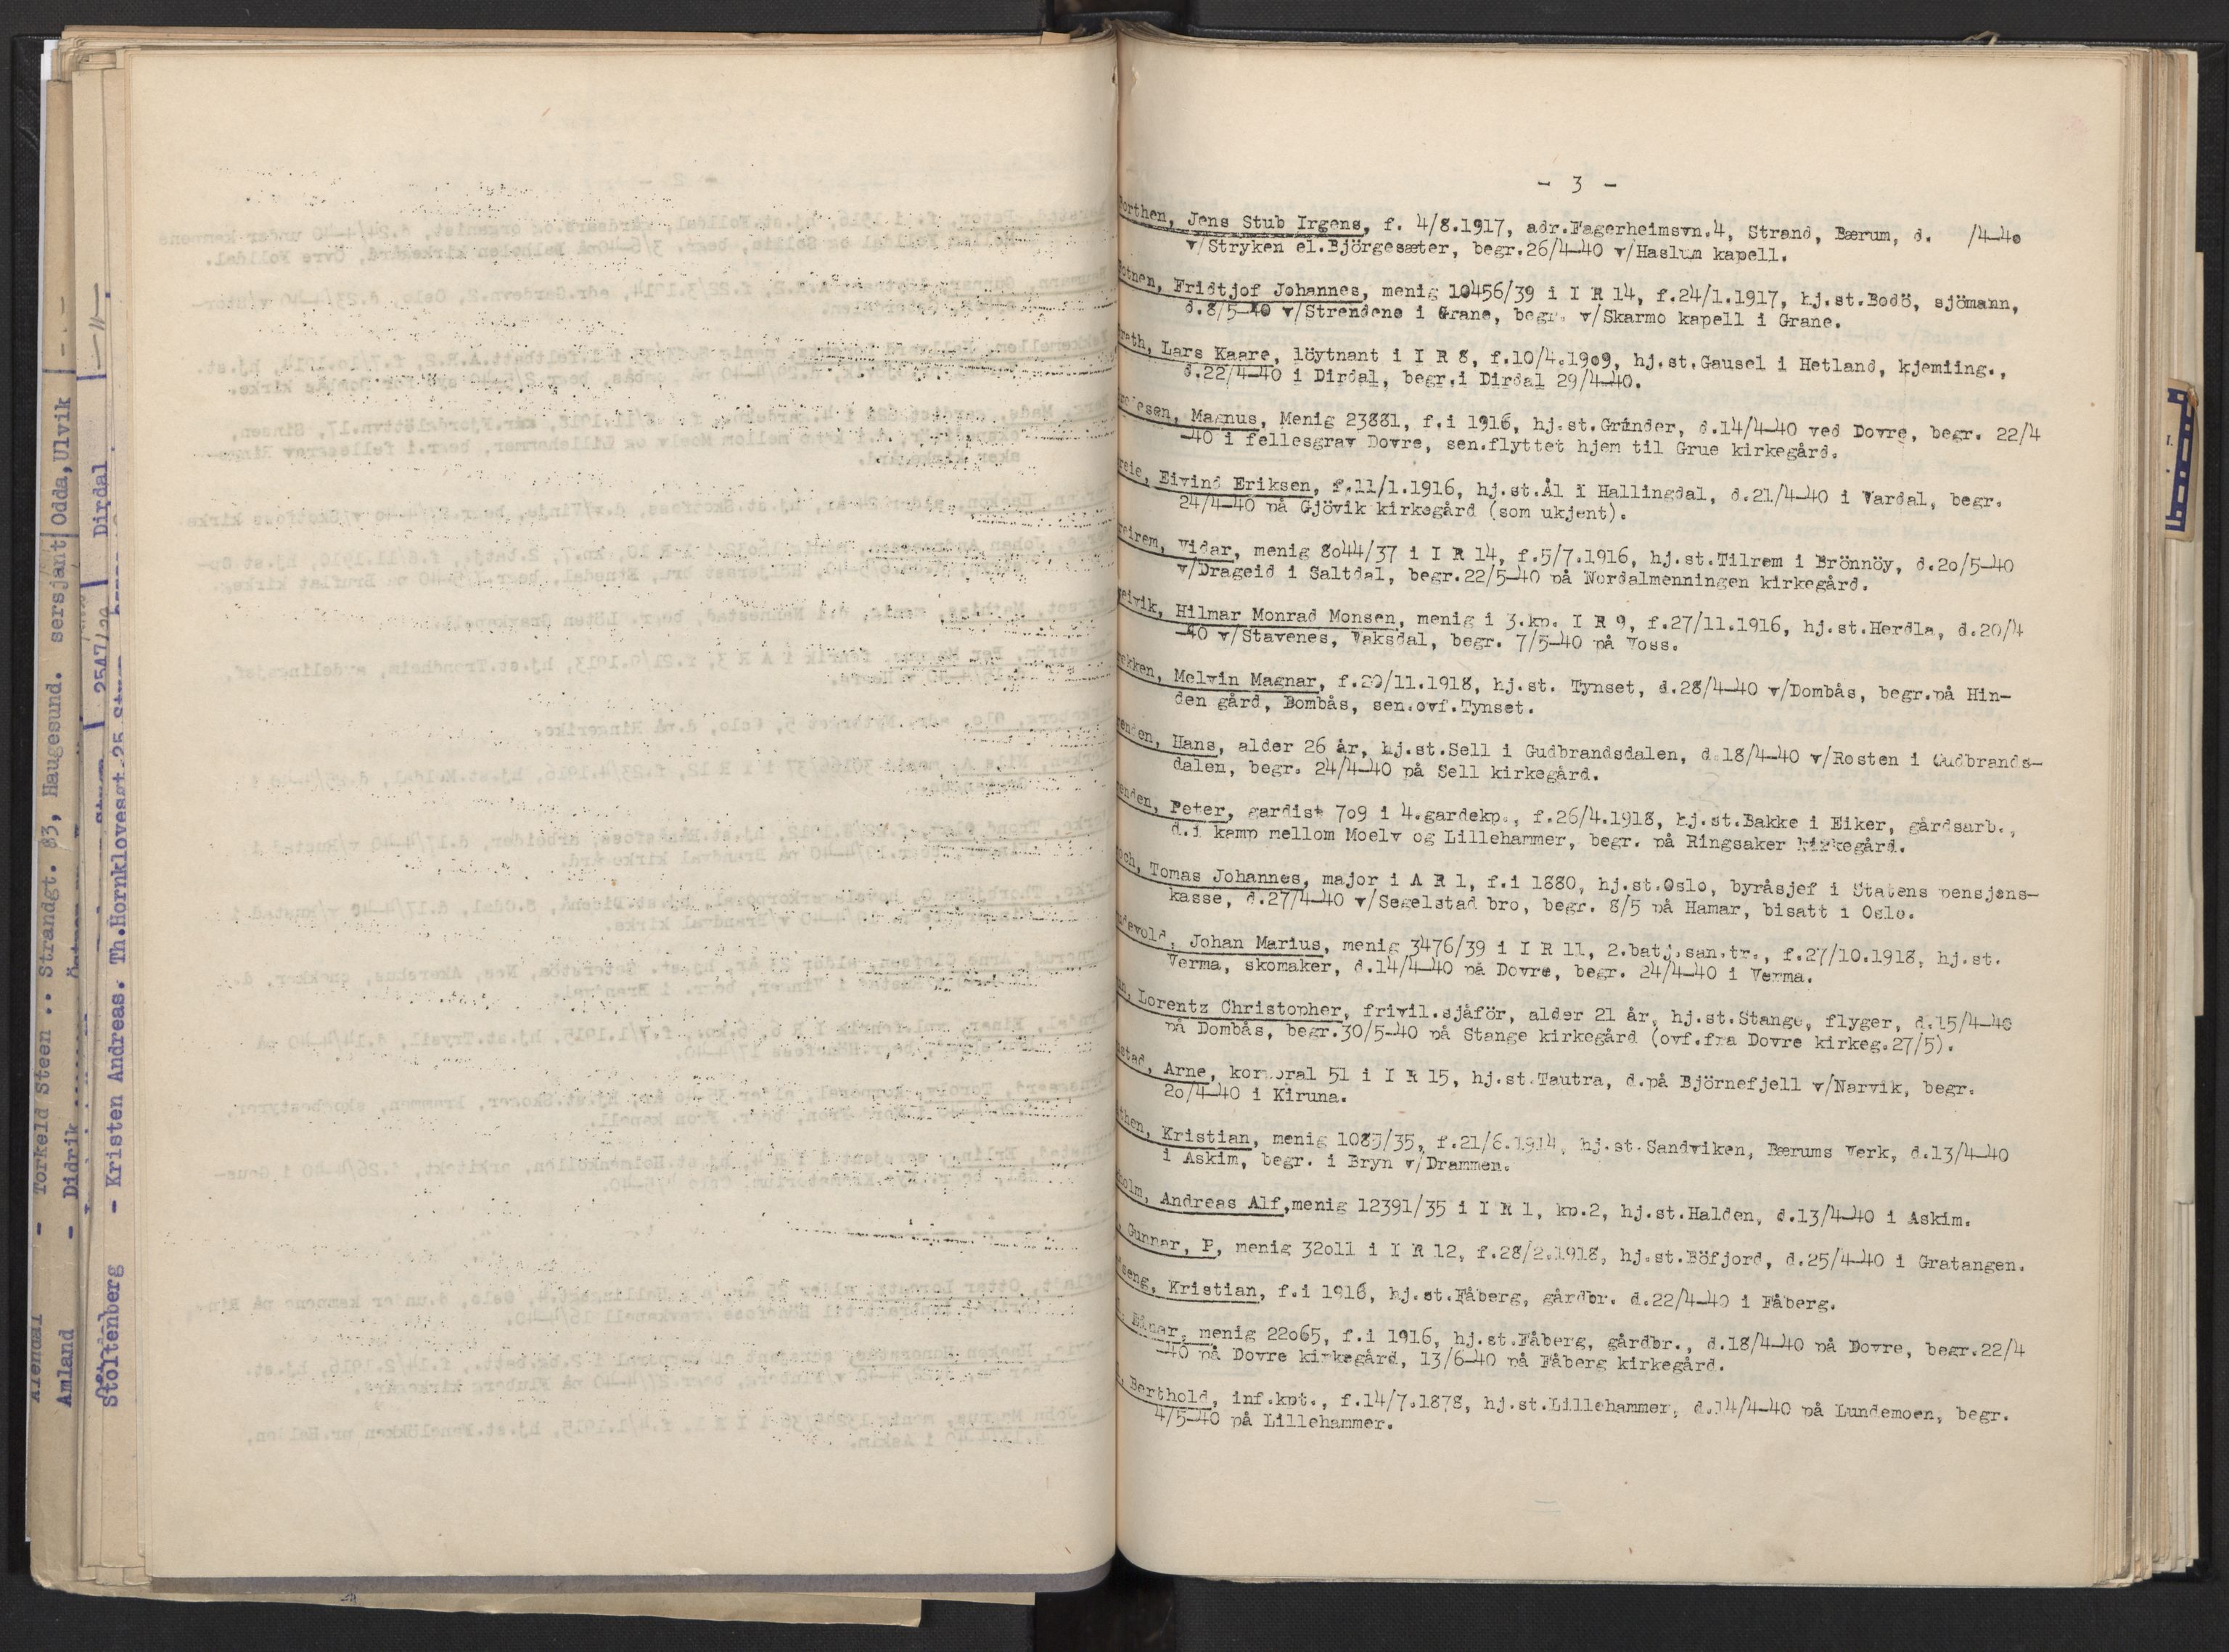 - 3 -
orthen, Jens Stub Irgens, f. 4/8.1917, adr.Fagerheimsvn.4, Strand, Bærum, d. /4-40
v/Stryken el.Björgesæter, begr.26/4-40 v/Haslum kapell.
otnen, Fridtjof Johannes, menig 10456/39 i I R 14, f.24/1.1917, hj.st.Bodö, sjömann,
d.8/5-40 v/Strendene i Grane, begr. v/Skarmo kapell i Grane.
rath, Lars Kaare, löytnant i I R 8, f.10/4.1909, hj.st.Gausel i Hetland, kjemiing.,
d.22/4-40 i Dirdal, begr.i Dirdal 29/4-40.
esen, Magnus, Menig 23881, f.i 1916, hj.st.Grinder, d.14/4-40 ved Dovre, begr. 22/4
-40 i fellesgrav Dovre, sen.flyttet hjem til Grue kirkegård.
reie, Eivind Eriksen, f.11/1.1916, hj.st.Ål i Hallingdal, d.21/4-40 i Vardal, begr.
24/4-40 på Gjövik kirkegård (som ukjent).
reirem, Vidar, menig 8044/37 i I R 14, f.5/7.1916, hj.st.Tilrem i Brönnöy, d.20/5-40
v/Drageid i Saltdal, begr.22/5-40 på Nordalmenningen kirkegård.
eivik, Hilmar Monrad Monsen, menig i 3.kp. I R 9, f.27/11.1916, hj.st.Herdla, d.20/4
-40 v/Stavenes, Vaksdal, begr. 7/5-40 på Voss.
ekken, Melvin Magnar, f.29/11.1918, hj.st. Tynset, d.28/4-40 v/Dombås, begr.på Hin-
den gård, Dombås, sen.ovf.Tynset.
enden, Hans, alder 26 år, hj.st.Sell i Gudbrandsdalen, d.18/4-40 v/Rosten i Gudbrands-
dalen, begr. 24/4-40 på Sell kirkegård.
enden, Peter, gardist 709 i 4.gardekp., f.26/4.1918, hj.st.Bakke i Eiker, gårdsarb.,
d.i kamp mellom Moelv og Lillehammer, begr. på Ringsaker kirkegård.
och, Tomas Johannes, major i A R 1, f.i 1880, hj.st.Oslo, byråsjef i Statens pensjons-
kasse, d.27/4-40 v/Segelstad bro, begr. 8/5 på Hamar, bisatt i Oslo.
devold, Johan Marius, menig 3476/39 i I R 11, 2.batj.san.tr., f.27/10.1918, hj.st.
Verma, skomaker, d.14/4-40 på Dovre, begr. 24/4-40 i Verma.
n, Lorentz Christopher, frivil.sjåför, alder 21 år, hj.st.Stange, flyger, d.15/4-40
på Dombås, begr.30/5-40 på Stange kirkegård (ovf.fra Dovre kirkeg.27/5).
stad, Arne, korporal 51 i I R 15, hj.st.Tautra, d.på Björnefjell v/Narvik, begr.
20/4-40 i Kiruna.
then, Kristian, menig 1085/35, f.21/6.1914, hj.st.Sandviken, Bærums Verk, d.13/4-40
i Askim, begr. i Bryn v/Drammen.
holm, Andreas Alf,menig 12391/35 i I R 1, kp.2, hj.st.Halden, d.13/4-40 i Askim.
, Gunnar, P, menig 32011 i I R 12, f.28/2.1918, hj.st.Böfjord, d.25/4-40 i Gratangen.
seng, Kristian, f.i 1916, hj.st.Fåberg, gårdbr. d.22/4-40 i Fåberg.
, Einar, menig 22065, f.i 1916, hj.st.Fåberg, gårdbr., d.18/4-40 på Dovre, begr.22/4
-40 på Dovre kirkegård, 13/6-40 på Fåberg kirkegård.
, Berthold, inf.kpt., f.14/7.1878, hj.st.Lillehammer, d.14/4-40 på Lundemoen, begr.
4/5-40 på Lillehammer.
- Torkeld Steen .. Strandgt. 83, Haugesund. sersjant Odda,Ulvik
Amland - Didrik Dirdal
Stoltenberg - Kristen Andreas. Th.Hornklovesgt.25